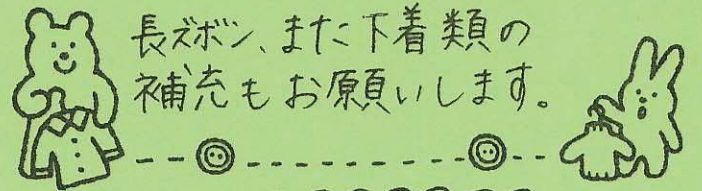 長ズボン、また下着類の
補充もお願いします。